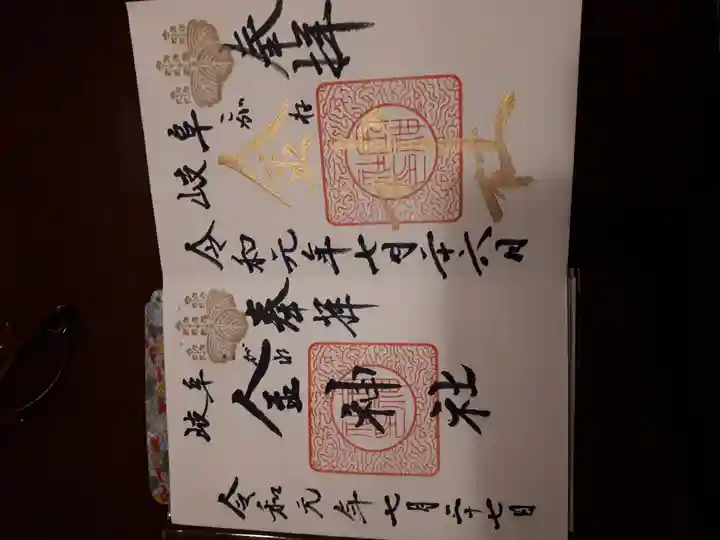 奉拝
岐阜
こがね
金神社
令和元年七月二十六日
奉拝
岐阜
こがね
金神社
令和元年七月二十七日